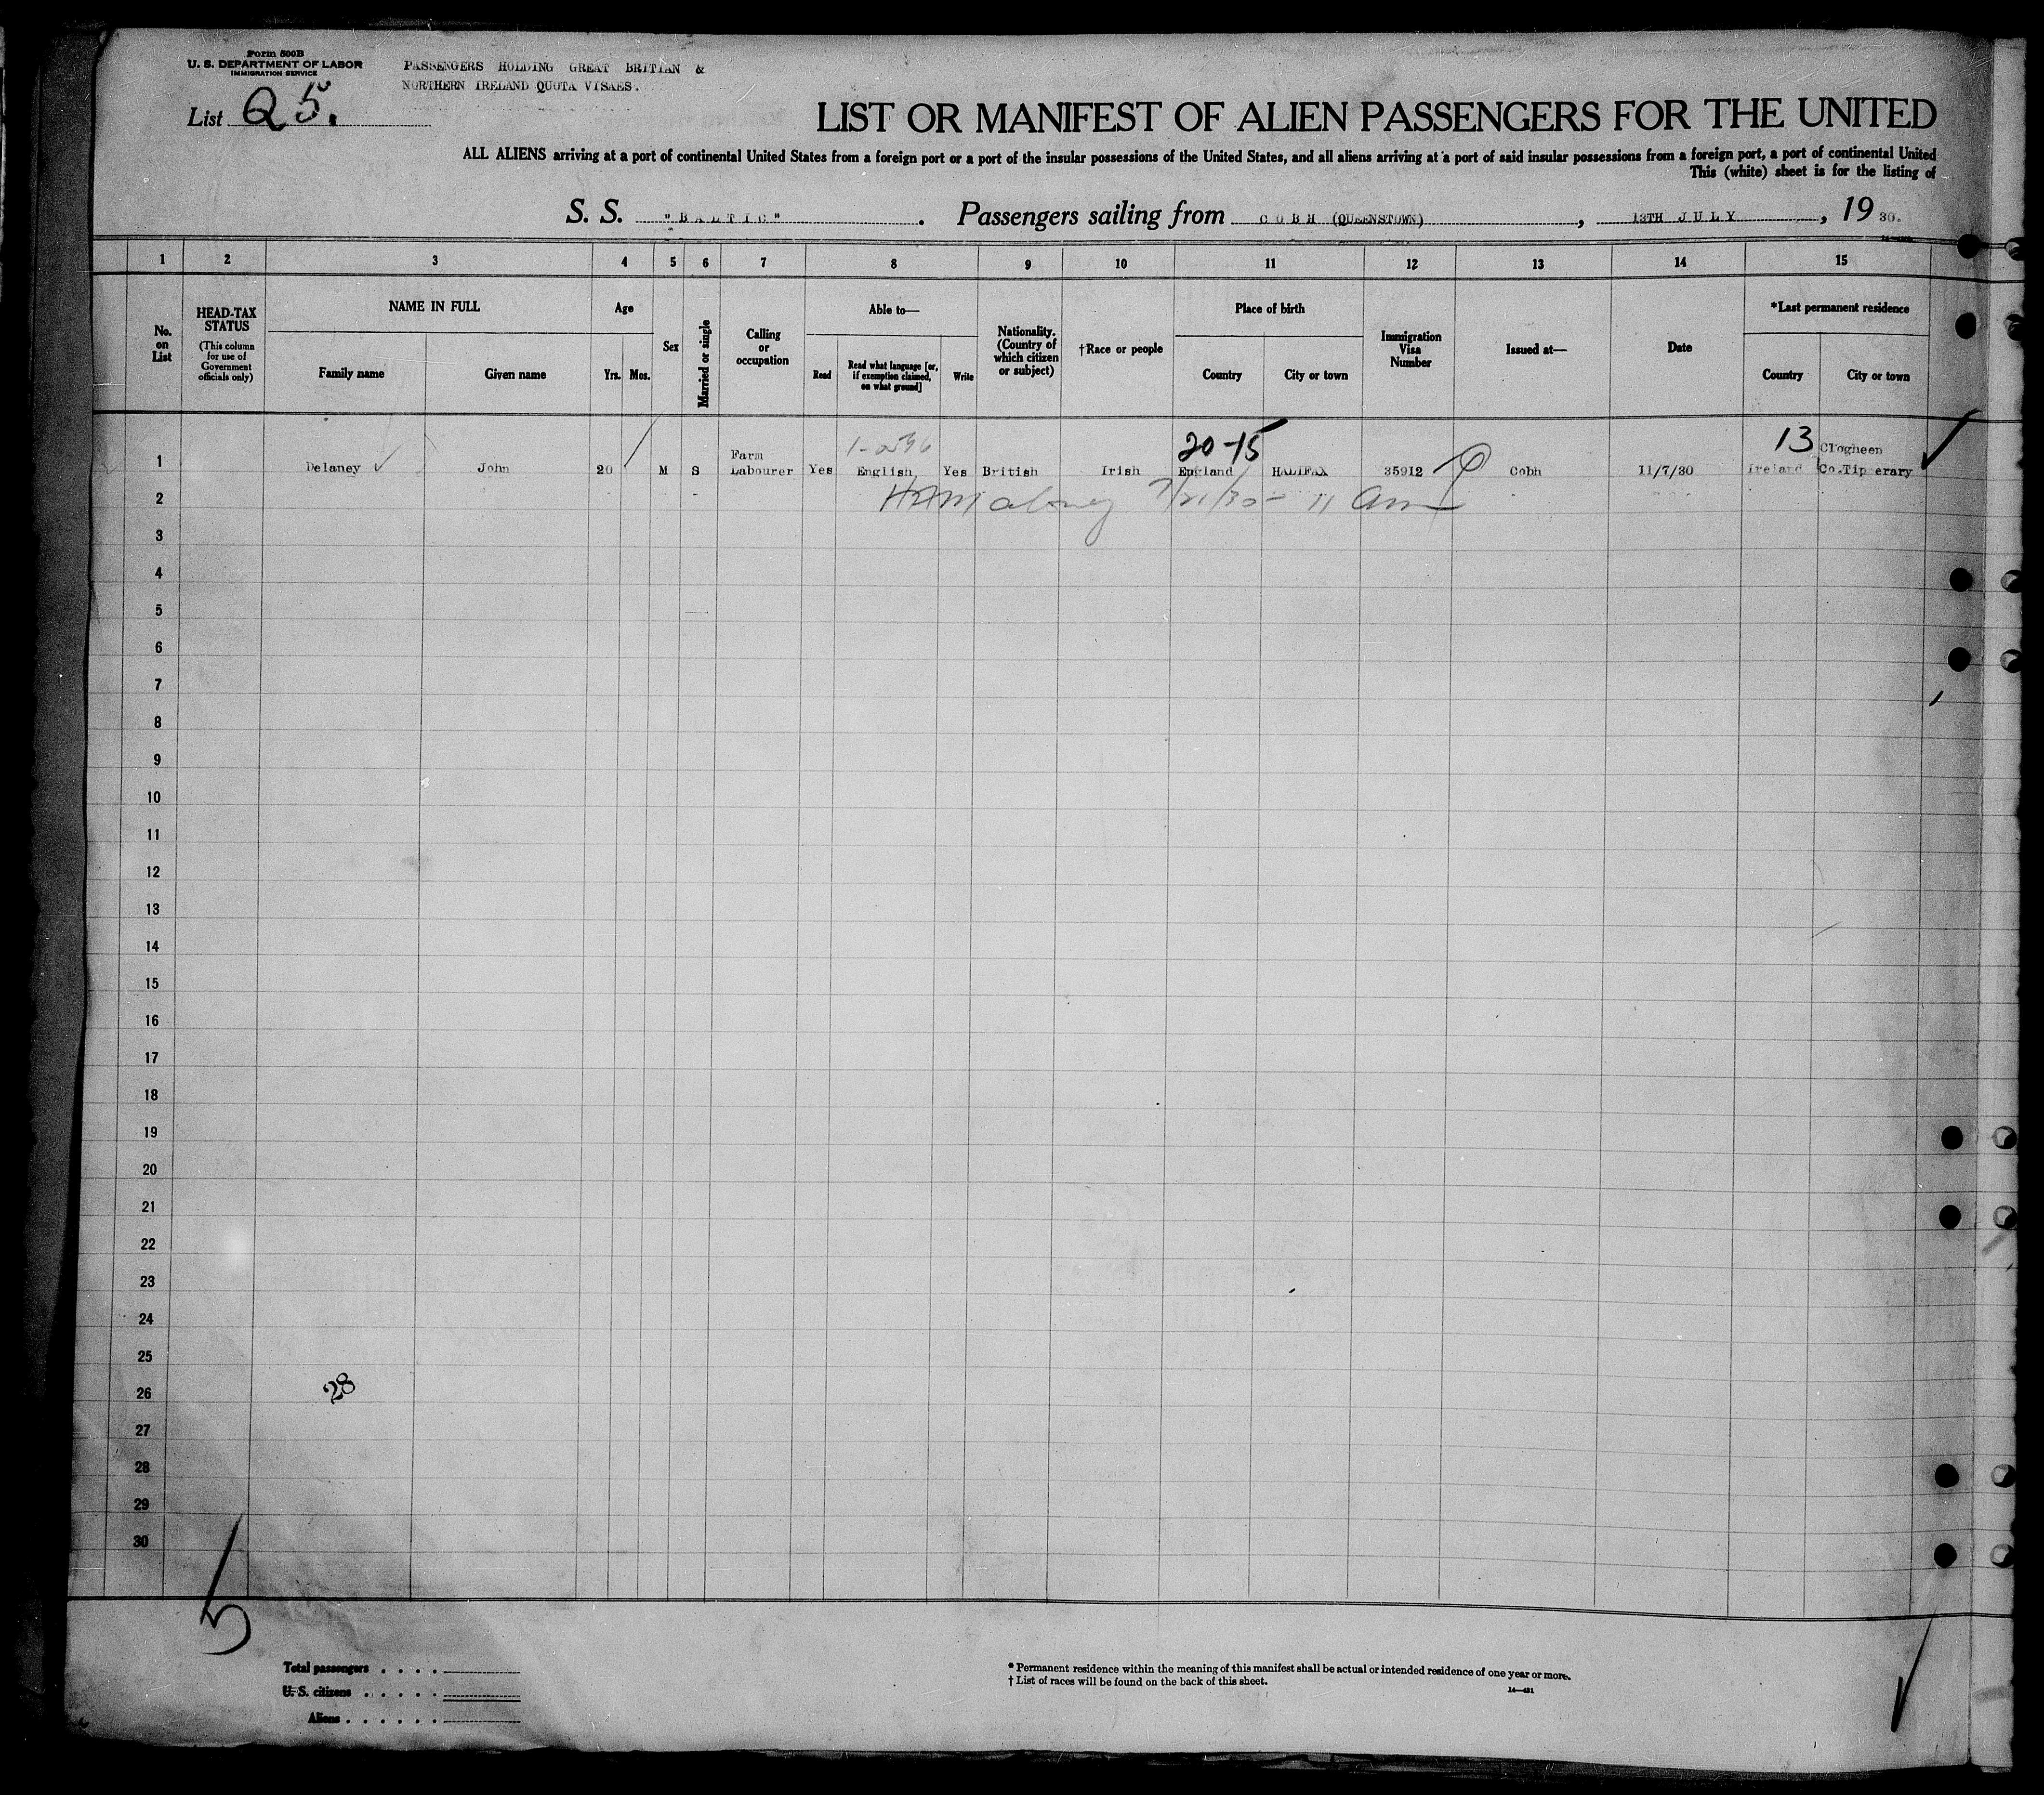 Form 500B
U. S. DEPARTMENT OF LABOR
IMMIGRATION SERVICE
PASSENGERS HOLDING GREAT BRITIAN &
NORTHERN IRELAND QUOTA VISAES.
List Q5.
LIST OR MANIFEST OF ALIEN PASSENGERS FOR THE UNITED
ALL ALIENS arriving at a port of continental United States from a foreign port or a port of the insular possessions of the United States, and all aliens arriving at a port of said insular possessions from a foreign port, a port of continental United
This (white) sheet is for the listing of
S. S. "BALTIC". Passengers sailing from COBH (QUEENSTOWN), 13TH JULY, 1930.
1 2 3 4 5 6 7 8 9 10 11 12 13 14 15
No. on List
HEAD-TAX STATUS
(This column for use of Government officials only)
NAME IN FULL
Family name
Given name
Age
Yrs.
Mos.
Sex
Married or single
Calling or occupation
Able to—
Read
Read what language [or, if exemption claimed, on what ground]
Write
Nationality. (Country of which citizen or subject)
†Race or people
Place of birth
Country
City or town
Immigration Visa Number
Issued at—
Date
*Last permanent residence
Country
City or town
20-15
13
1 Delaney John 20 M S Farm Labourer Yes English Yes British Irish England HALIFAX 35912 Cobh 11/7/30 Ireland Clogheen Co.Tipperary
7/21/30 - 11 am
2
3
4
5
6
7
8
9
10
11
12
13
14
15
16
17
18
19
20
21
22
23
24
25
26
28
27
28
29
30
5
Total passengers . . . .
U. S. citizens . . . . .
Aliens . . . . . .
* Permanent residence within the meaning of this manifest shall be actual or intended residence of one year or more.
† List of races will be found on the back of this sheet.
14—431